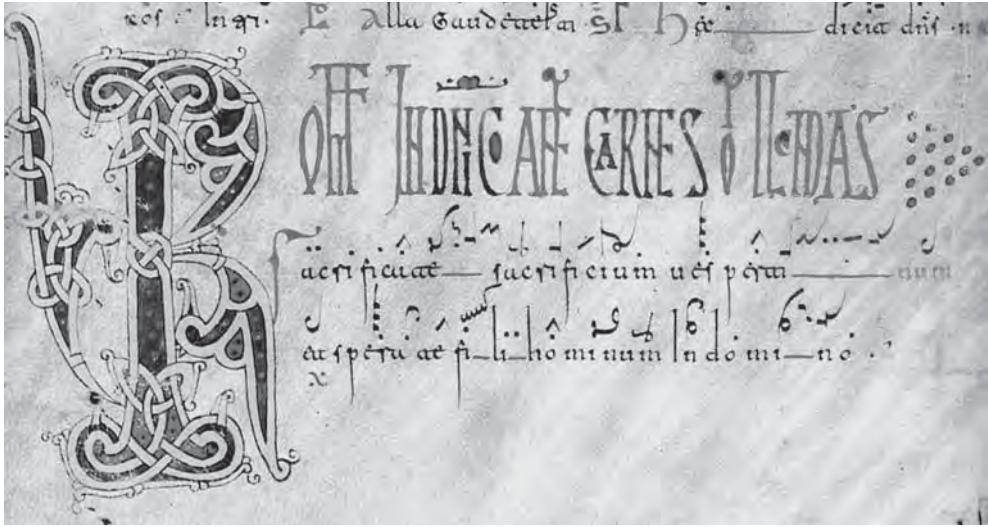 Alla Gaudete dicia dns
OFF IN DNICO ANTE CARNES TOLLENDAS
Sacrificate sacrificium uesperti num
et sperate fi li ho minum In do mi no